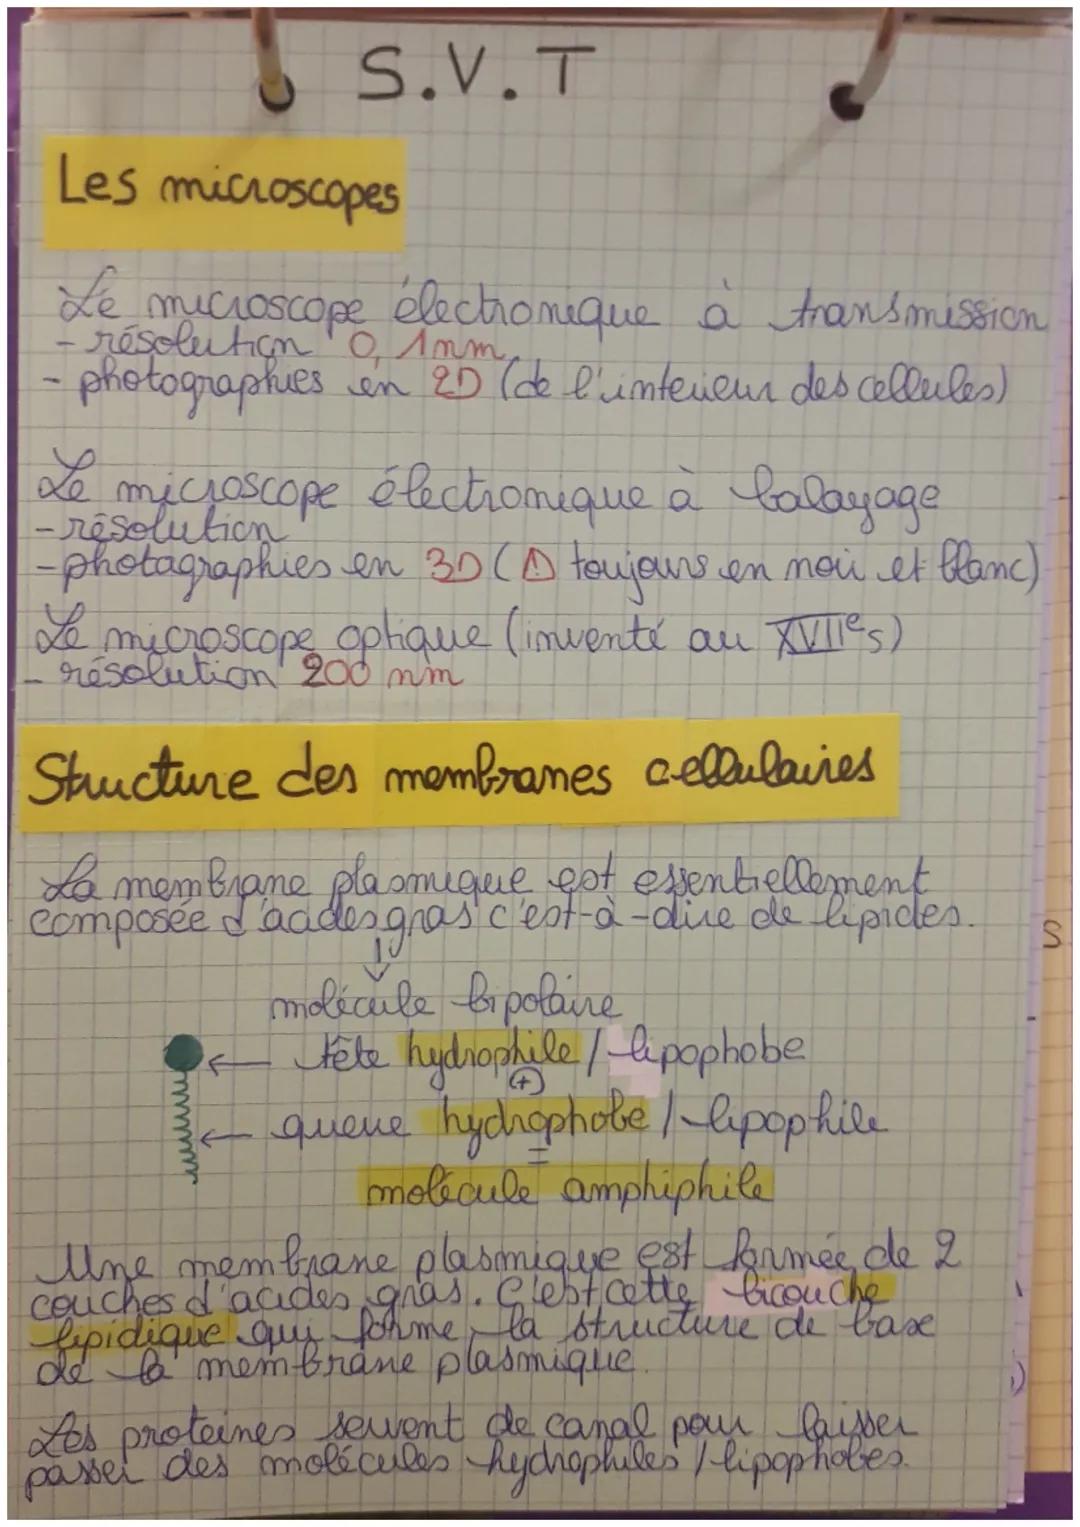 S.V.T
Les microscopes
Le microscope électronique à transmission
- résolution 0,1nm
- photographies en 2D (de l'interieur des cellules)
Le microscope électronique à balayage
- résolution
- photagraphies en 3D (⚠ toujours en noir et blanc)
Le microscope optique (inventé au XVIIes)
- résolution 200 nm
Structure des membranes cellulaires
La membrane plasmique est essentiellement
composée d'acides gras c'est-à-dire de lipides.
↓
molécule bipolaire
← tête hydrophile / lipophobe
(+)
← queue hydrophobe / lipophile
=
molécule amphiphile
Une membrane plasmique est formée de 2
couches d'acides gras. C'est cette bicouche
lipidique qui forme la structure de base
de la membrane plasmique.
Les proteines servent de canal pour laisser
passer des molécules hydrophiles / lipophobes.
S